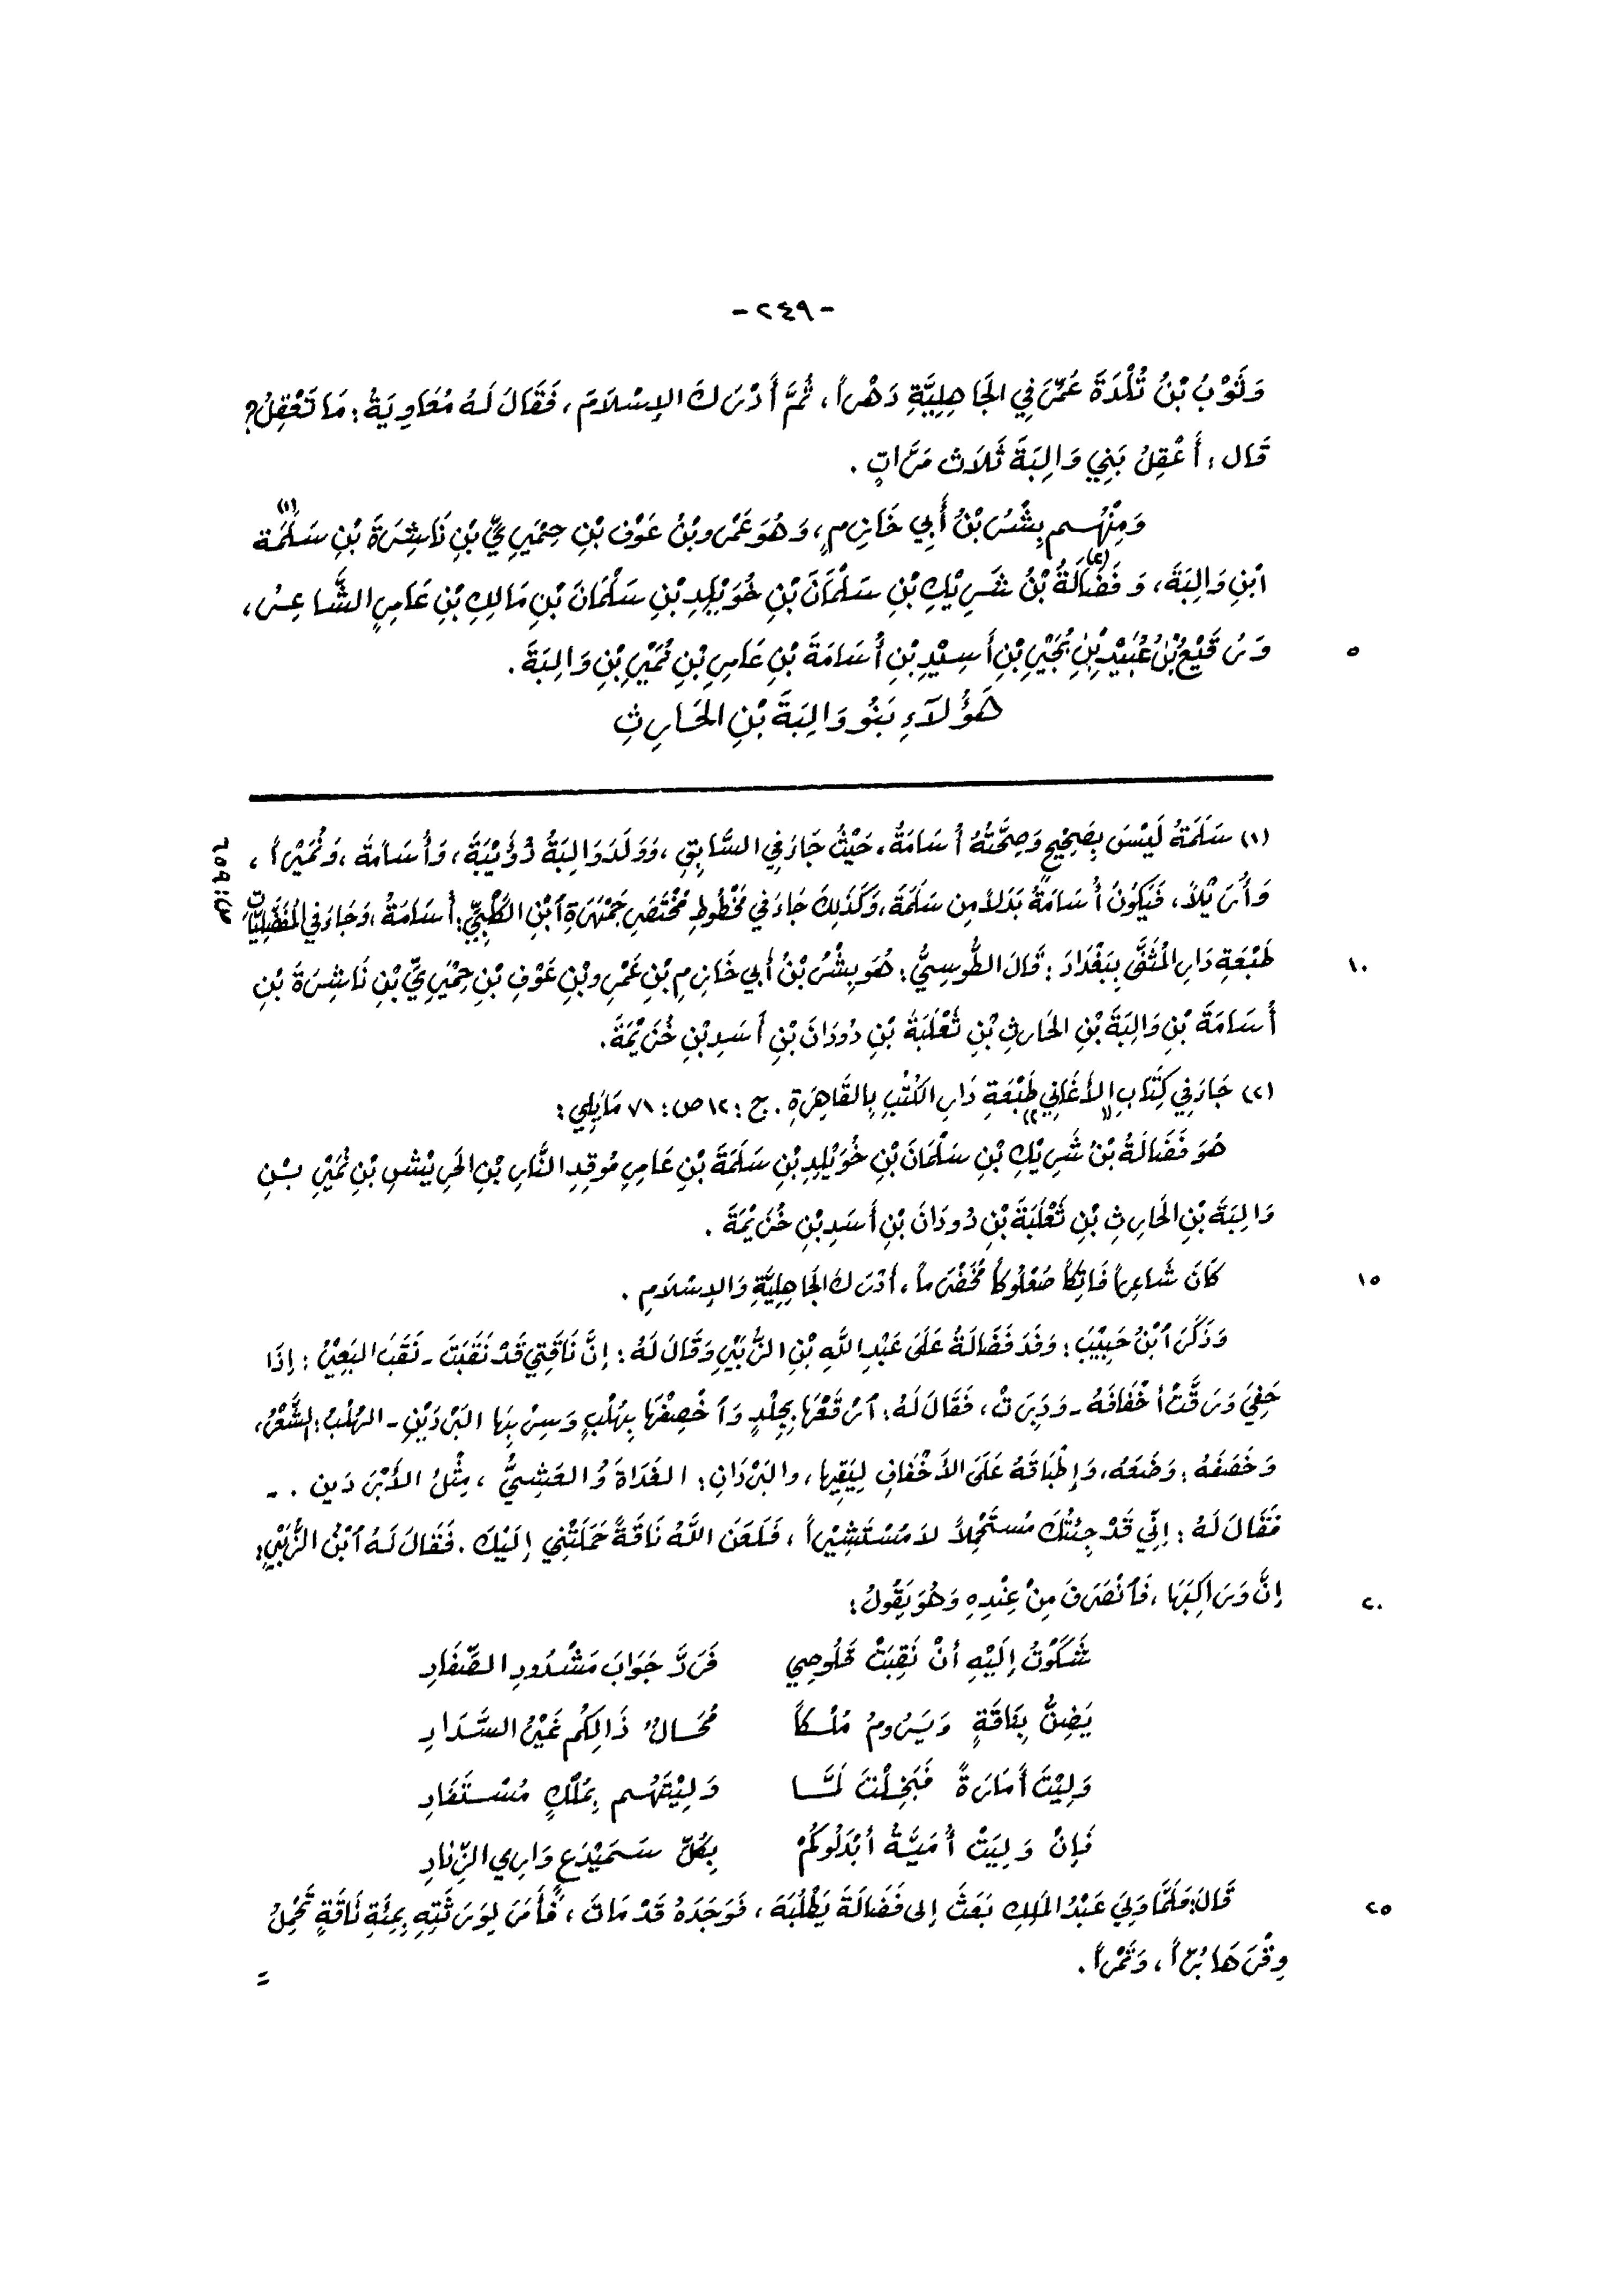 -٢٤٩-
وَثَوْبُ بْنُ تُلْدَةَ عُمِّرَ فِي الجَاهِلِيَّةِ دَهْراً، ثُمَّ أَدْرَكَ الإِسْلَامَ، فَقَالَ لَهُ مُعَاوِيَةُ: مَا تَعْقِلُ؟
قَال: أَعْقِلُ بَنِي وَالِبَةَ ثَلَاثَ مَرَّاتٍ.
وَمِنْهُم بِشْرُ بْنُ أَبِي خَازِمٍ، وَهُوَ عَمْرُو بْنُ عَوْفِ بْنِ حِمْيَرِيِّ بْنِ نَاشِرَةَ بْنِ سَلَمَةَ (١)
ابْنِ وَالِبَةَ، وَفَضَالَةُ (٢) بْنُ شَرِيْكِ بْنِ سَلْمَانَ بْنِ خُوَيْلِدِ بْنِ سَلْمَانَ بْنِ مَالِكِ بْنِ عَامِرٍ الشَّاعِرُ،
٥ وَرُقَيْعُ بْنُ عُبَيْدِ بْنِ بُجَيْرِ بْنِ أَسِيْدِ بْنِ أُسَامَةَ بْنِ عَامِرِ بْنِ نُمَيْرِ بْنِ وَالِبَةَ.
هَؤُلَآءِ بَنُو وَالِبَةَ بْنِ الحَارِثِ
(١) سَلَمَةُ لَيْسَ بِصَحِيْحٍ وَصِحَّتُهُ أُسَامَةُ، حَيْثُ جَاءَ فِي السَّابِقِ، وَوَلَدَ وَالِبَةُ ذُؤَيْبَةَ، وَأُسَامَةَ، وَنُمَيْراً،
وَأُرَيْلاً، فَيَكُونُ أُسَامَةُ بَدَلاً مِن سَلَمَةَ، وَكَذَلِكَ جَاءَ فِي مَخْطُوطِ مُخْتَصَرِ جَمْهَرَةِ ابْنِ الكَلْبِيِّ: أُسَامَةُ، وَجَاءَ فِي المُفَضَّلِيَّاتِ
ص: ٦٥٩
١٠ طَبْعَةِ دَارِ المُثَنَّى بِبَغْدَادَ: قَالَ الطُّوسِيُّ: هُوَ بِشْرُ بْنُ أَبِي خَازِمِ بْنِ عَمْرِو بْنِ عَوْفِ بْنِ حِمْيَرِيِّ بْنِ نَاشِرَةَ بْنِ
أُسَامَةَ بْنِ وَالِبَةَ بْنِ الحَارِثِ بْنِ ثَعْلَبَةَ بْنِ دُودَانَ بْنِ أَسَدِ بْنِ خُزَيْمَةَ.
(٢) جَاءَ فِي كِتَابِ "الأَغَانِي" طَبْعَةِ دَارِ الكُتُبِ بِالقَاهِرَةِ. ج: ١٢ ص: ٧١ مَايَلِي:
هُوَ فَضَالَةُ بْنُ شَرِيْكِ بْنِ سَلْمَانَ بْنِ خُوَيْلِدِ بْنِ سَلَمَةَ بْنِ عَامِرٍ مُوقِدِ النَّارِ بْنِ الحَرِيْشِ بْنِ نُمَيْرِ بْنِ
وَالِبَةَ بْنِ الحَارِثِ بْنِ ثَعْلَبَةَ بْنِ دُودَانَ بْنِ أَسَدِ بْنِ خُزَيْمَةَ.
١٥ كَانَ شَاعِراً فَاتِكاً صُعْلُوكاً مُخَضْرَماً، أَدْرَكَ الجَاهِلِيَّةِ وَالإِسْلَامِ.
وَذَكَرَ ابْنُ حَبِيْبَ: وَفَدَ فَضَالَةُ عَلَى عَبْدِ اللَّهِ بْنِ الزُّبَيْرِ وَقَالَ لَهُ: إِنَّ نَاقَتِي قَدْ نَقَبَتَ - نَقَبَ البَعِيْرُ: إِذَا
حَفِيَ وَرَقَّتْ أَخْفَافَهُ - وَدَبِرَتْ، فَقَالَ لَهُ: ارْقَعْهَا بِجِلْدٍ وَاخْصِفْهَا بِهُلْبٍ وَسِرْ بِهَا البَرْدَيْنِ - الهُلْبُ: الشَّعْرُ،
وَخَصَفَهُ: وَضَعَهُ، وَإِطْبَاقَهُ عَلَى الأَخْفَافِ لِيَقِيهَا، والبَرْدَانِ: الغَدَاةَ وُالعَشِيُّ، مِثْلُ الأَبْرَدَينِ. -
فَقَالَ لَهُ: إِنِّي قَدْ جِئْتُكَ مُسْتَحْمِلاً لَا مُسْتَشِيْراً، فَلَعَنَ اللَّهُ نَاقَةً حَمَلَتْنِي إِلَيْكَ. فَقَالَ لَهُ ابْنُ الزُّبَيْرِ:
٢٠ إِنَّ وَرَاكِبَهَا، فَانْصَرَفَ مِنْ عِنْدِهِ وَهُوَ يَقُولُ:
شَكَوْتُ إِلَيْهِ أَنْ نَقِبَتْ قَلُوصِي فَرَدَّ جَوَابَ مَشْدُودِ الصِّفَادِ
يَضِنُّ بِنَاقَةٍ وَيَرُومُ مُلْكاً مُحَالٌ ذَالِكُم غَيْرُ السَّدَادِ
وَلِيْتَ أَمَارَةً فَبَخِلْتَ لَمَّا وَلِيْتَهُم بِمُلْكٍ مُسْتَفَادِ
فَإِنْ وَلِيَتْ أُمَيَّةُ أَبْدَلُوكُمْ بِكُلِّ سَمَيْدَعٍ وَارِي الزِّنَادِ
٢٥ قَالَ: فَلَمَّا وَلِيَ عَبْدُ المَلِكِ بَعَثَ إِلى فَضَالَةَ يَطْلُبَهَ، فَوَجَدَهُ قَدْ مَاتَ، فَأَمَرَ لِوَرَثَتِهِ بِمِئَةِ نَاقَةٍ تَحْمِلُ
وِقْرَهَا بُرّاً، وَتَمْراً.
=